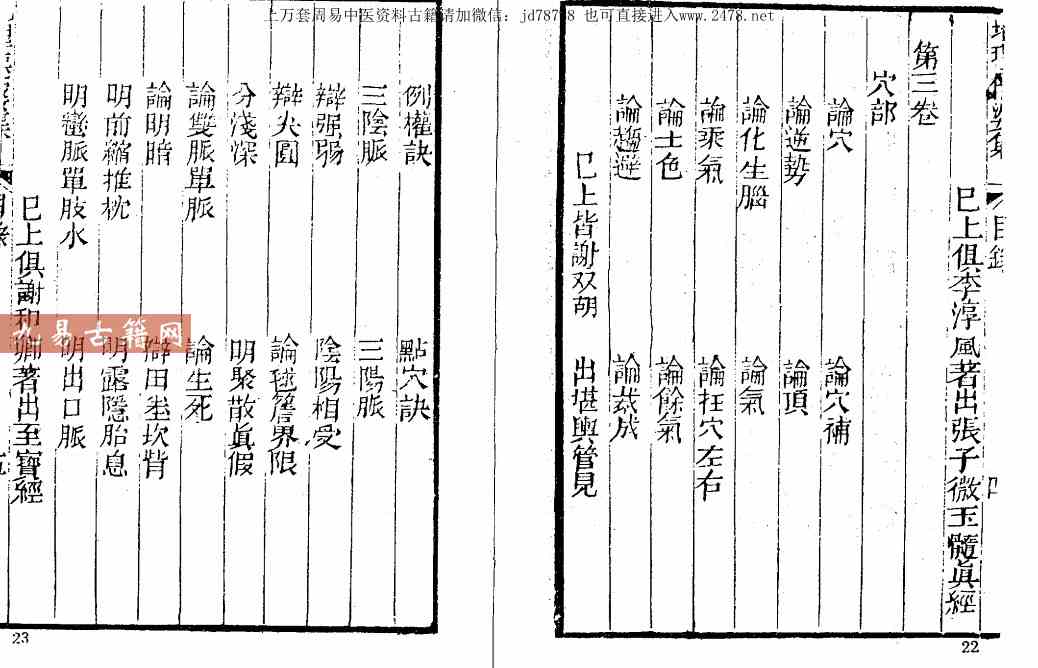 上万套周易中医资料古籍请加微信：jd78788 也可直接进入www.2478.net
目錄
巳上俱李淳風著出張子微玉髓眞經
第三卷
穴部
論穴 論穴補
論逆勢 論頂
論化生腦 論氣
論乘氣 論扗穴左右
論土色 論餘氣
論趨避 論裁成
巳上皆謝双胡 出堪輿管見
22
例權訣 點穴訣
三陰脈 三陽脈
辯强弱 陰陽相受
辯尖圓 論毬簷界限
分淺深 明聚散眞假
論雙脈單脈 論生死
論明暗 辯田坐坎背
明前縮推枕 明露隱胎息
明彎脈單肢水 明出口脈
巳上俱謝和卿著出至寶經
九易古籍网
23